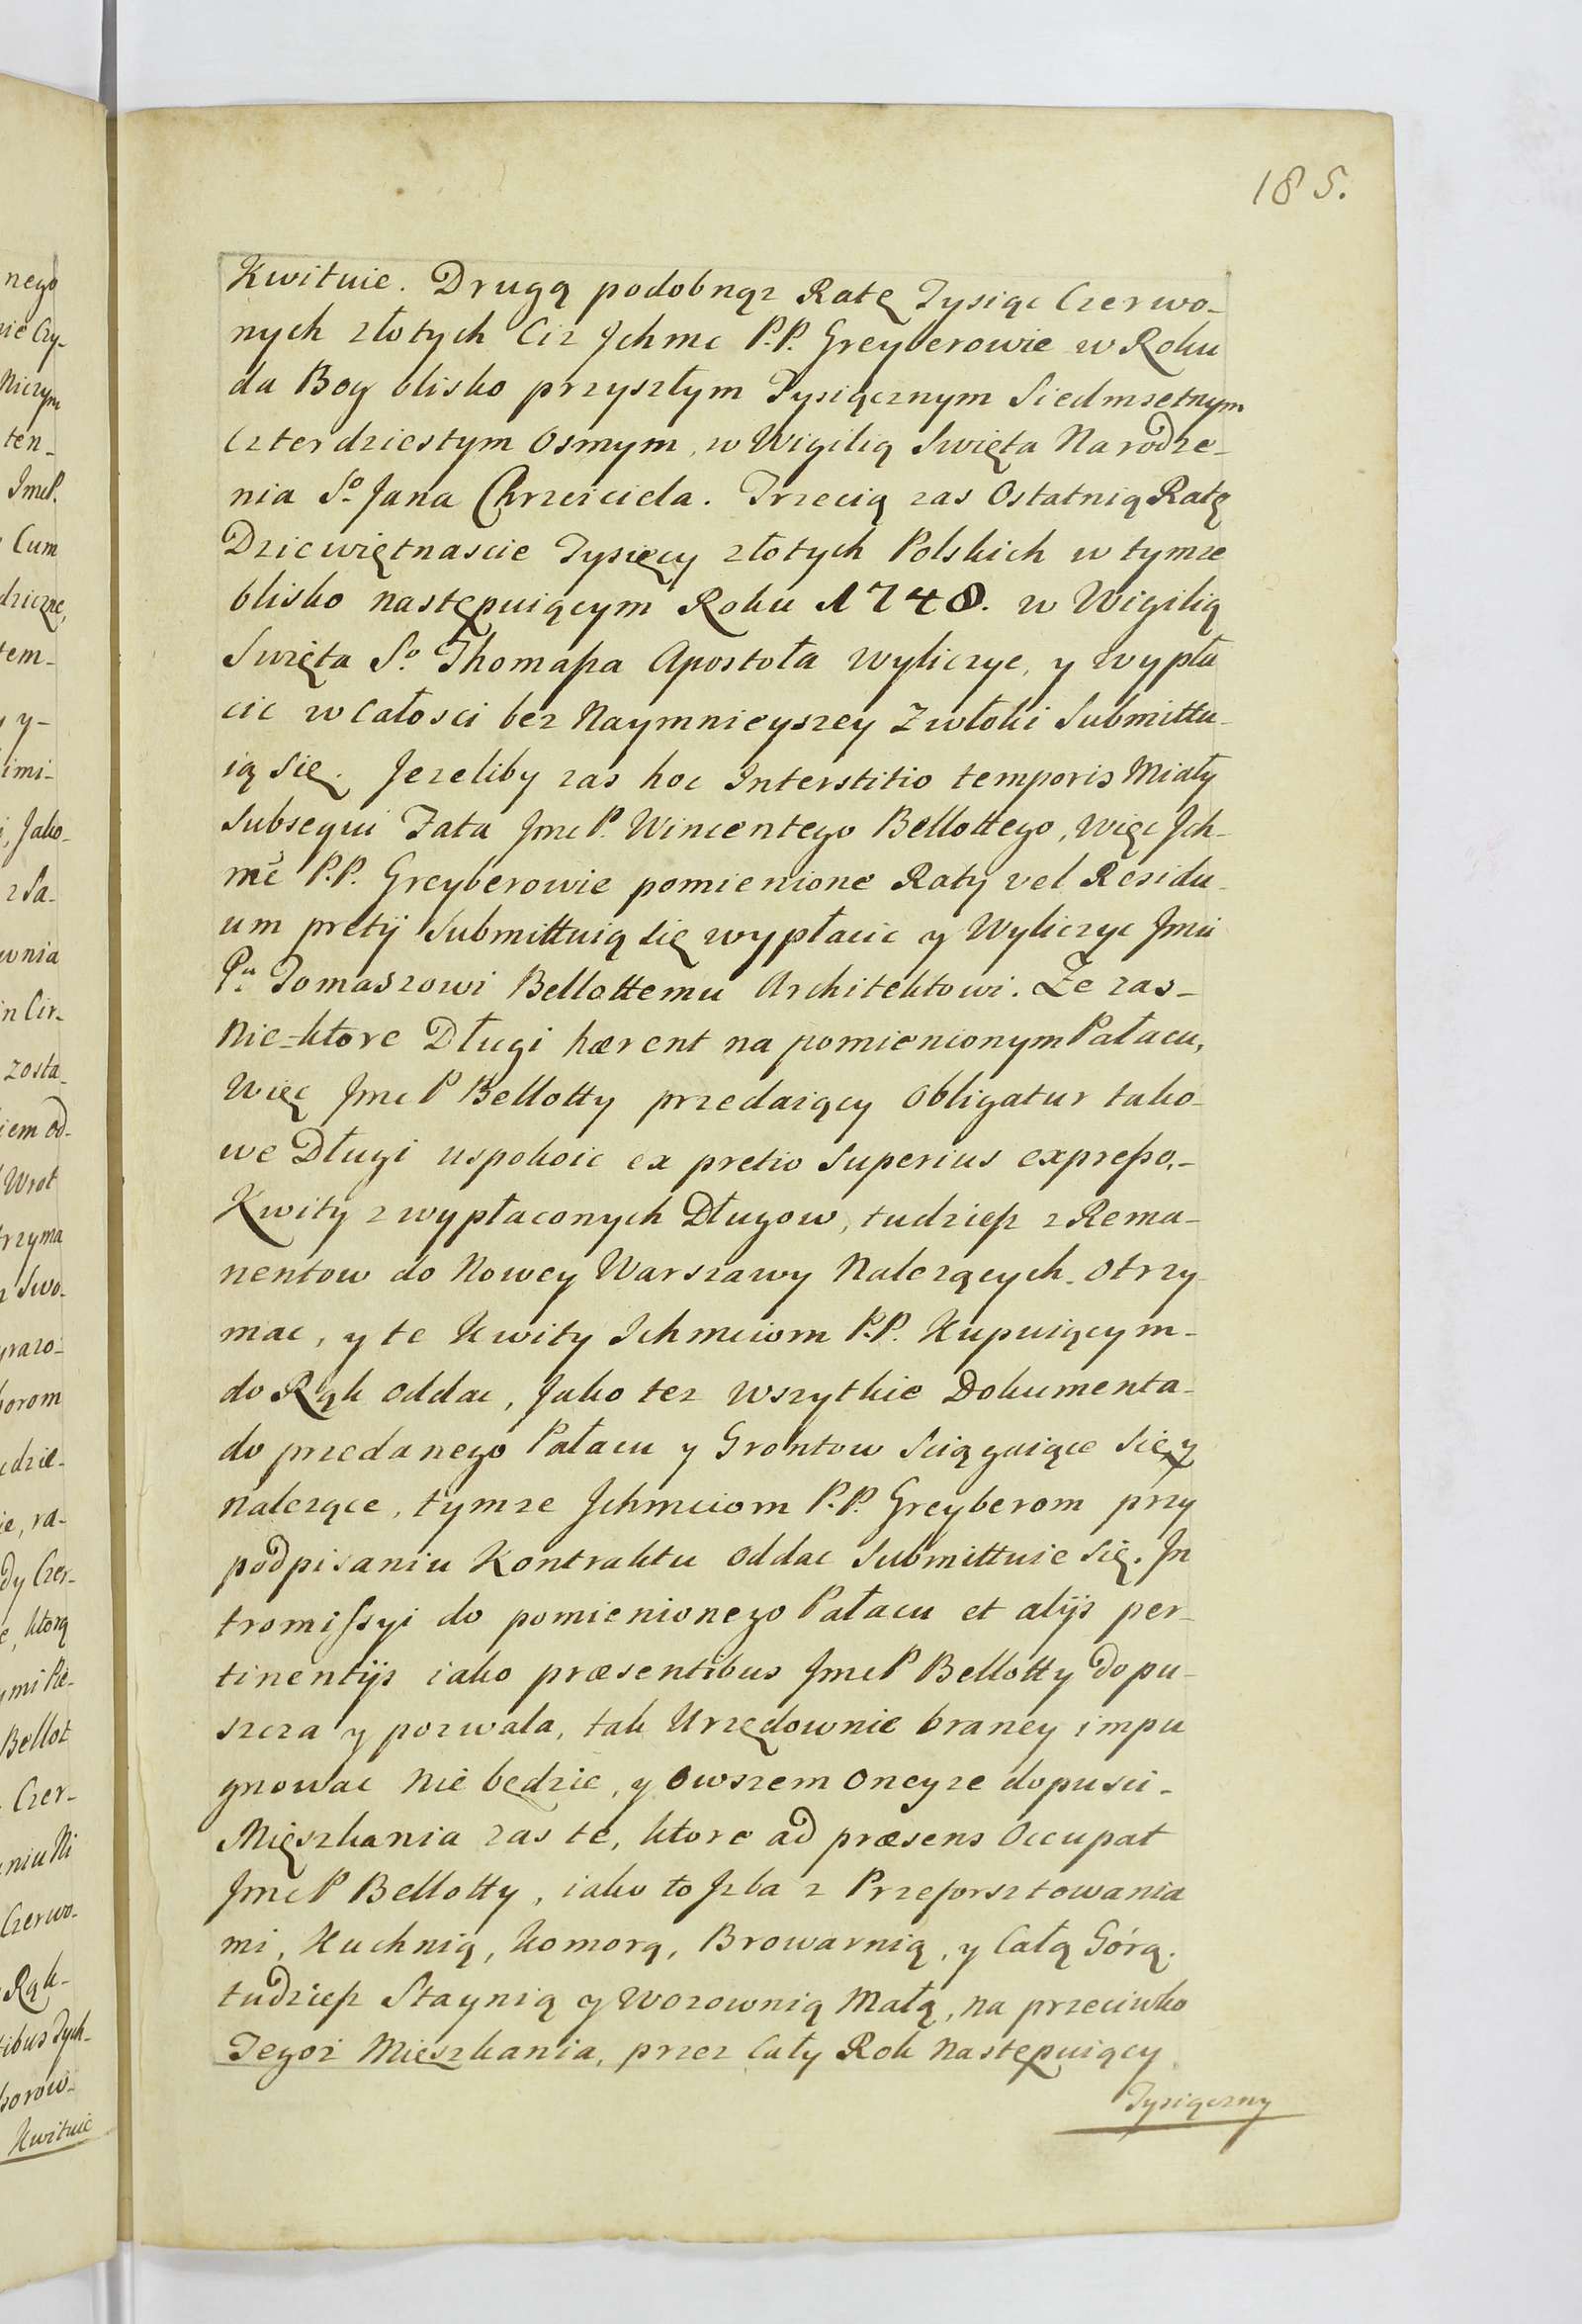 185.
Kwituie. Drugą podobnąz Ratę Tysiąc Czerwo-
nych złotych Ciz Jchmc P.P. Greyberowie w Roku
da Bog blisko przyszłym Tysiącznym Siedmsetnym
Czterdziestym Osmym, w Wigilią Swięta Narodze-
nia So Jana Chrzciciela. Trzecią zas Ostatnią Ratę
Dziewiętnascie Tysięcy złotych Polskich w tymze
blisko następuiącym Roku 1748. w Wigilią
Swięta So Thomaßa Apostoła wyliczyc, y wypła
cic w Całosci bez Naymnieyszey Zwłoki Submittu-
ią się. Jezeliby zas hoc Interstitio temporis Miały
Subsequi Fata JmcP. Wincentego Bellottego, więc Jch-
mć P.P. Greyberowie pomienione Raty vel Residu-
um pretij Submittuią się wypłacic y Wyliczyc Jmu
Pu Tomaszowi Bellottemu Architektowi. Ze zas-
Nie=ktore Długi hærent na pomienionym Pałacu,
Więc Jmc P Bellotty przedaiący obligatur tako-
we Długi uspokoic ex pretio Superius expreßo,-
Kwity z wypłaconych Długow, tudzieß z Rema-
nentow do Nowey Warszawy Nalezących. otrzy-
mac, y te Kwity Ichmciom P.P. Kupuiącym-
do Rąk oddac, Jako tez wszytkie Dokumenta-
do przedanego Pałacu y Grontow Sciągaiące się y
nalezące, tymze Jchmciom P.P. Greyberom przy
podpisaniu Kontraktu oddac Submittuie się. Jn
tromissyi do pomienionego Pałacu et alijs per-
tinentijs iako præsentibus JmcP Bellotty dopu-
szcza y pozwala, tak Urzędownie braney impu
gnowac nie będzie, y owszem oneyze dopusci-
Mięszkania zas te, ktore ad præsens Occupat
JmcP Bellotty, iako to Jzba z Przeforsztowania
mi, Kuchnią, Komorą, Browarnią, y Całą Górą.
tudzieß Staynią y Wozownią Małą, na przeciwko
Tegoż Mieszkania, przez Cały Rok Następuiący
Tysiączny
nego
Niczym
ten-
JmcP.
Cum
tem-
y-
imi-
Jako-
wnia
in Cir-
zosta-
iem od-
Wrot
trzyma
Swo-
borom
ie, ra-
dy Czer-
ktorą
Bellot
Czer-
niu Ni
Czerwo-
Rąk-
tibus Tych-
Kwituie